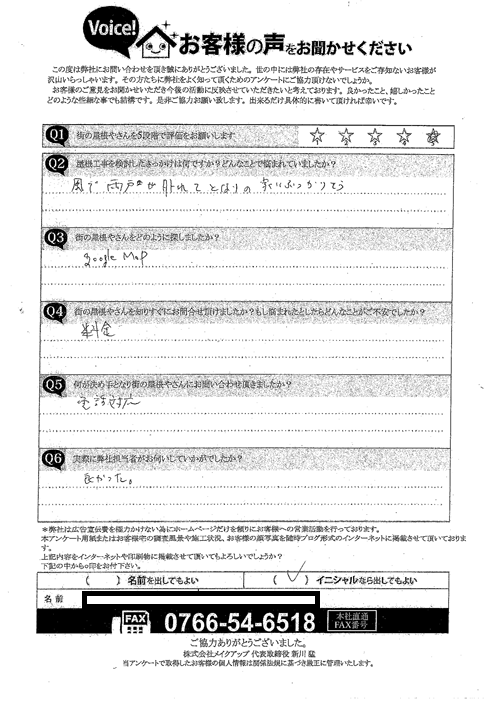 Voice!
お客様の声をお聞かせください
この度は弊社にお問い合わせを頂き誠にありがとうございました。世の中には弊社の存在やサービスをご存知ないお客様が
沢山いらっしゃいます。その方たちに弊社をよく知って頂くためのアンケートにご協力頂けないでしょうか。
お客様のご意見をお聞かせいただき今後の活動に反映させていただきたいと考えております。良かったこと、嬉しかったこと
どのような些細な事でも結構です。是非ご協力お願い致します。出来るだけ具体的に書いて頂ければ幸いです。
Q1 街の屋根やさんを5段階で評価をお願いします
Q2 屋根工事を検討したきっかけは何ですか？どんなことで悩まれていましたか？
風で雨戸が外れてとなりの家にぶつかりそう
Q3 街の屋根やさんをどのように探しましたか？
google Map
Q4 街の屋根やさんを知りすぐにお問合せ頂けましたか？もし悩まれたとしたらどんなことがご不安でしたか？
料金
Q5 何が決め手となり街の屋根やさんにお問い合わせ頂きましたか？
電話対応
Q6 実際に弊社担当者がお伺いしていかがでしたか？
良かった。
＊弊社は広告宣伝費を極力かけない為にホームページだけを頼りにお客様への営業活動を行っております。
本アンケート用紙またはお客様宅の調査風景や施工状況、お客様の顔写真を随時ブログ形式のインターネットに掲載させて頂いておりま
す。
上記内容をインターネットや印刷物に掲載させて頂いてもよろしいでしょうか？
下記の中から○印をお付下さい。
（　）名前を出してもよい　（✓）イニシャルなら出してもよい
名前
FAX 0766-54-6518 本社直通 FAX番号
ご協力ありがとうございました。
株式会社メイクアップ 代表取締役 新川 猛
当アンケートで取得したお客様の個人情報は関係法規に基づき厳正に管理いたします。